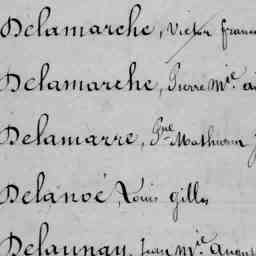 Delamarche, Victor franc
Delamarche, Pierre M.ie
Delamarre, Mathurin
Delanoé, Louis gilles
Delaunay, Jean M.ie August